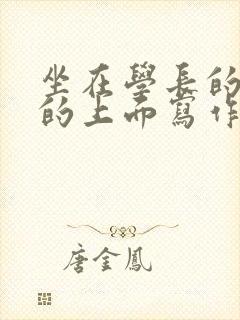 坐在學長的
的上而寫作
唐金鳳